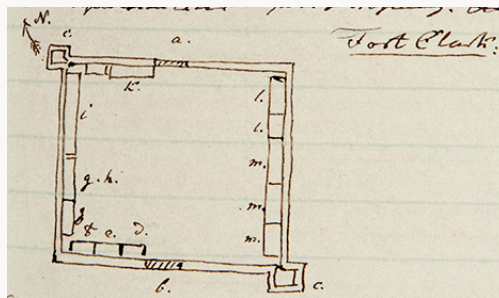 N.
c. a.
Fort Clark.
k.
i l.
l.
m.
g. h.
m.
f e. d. m.
b. c.